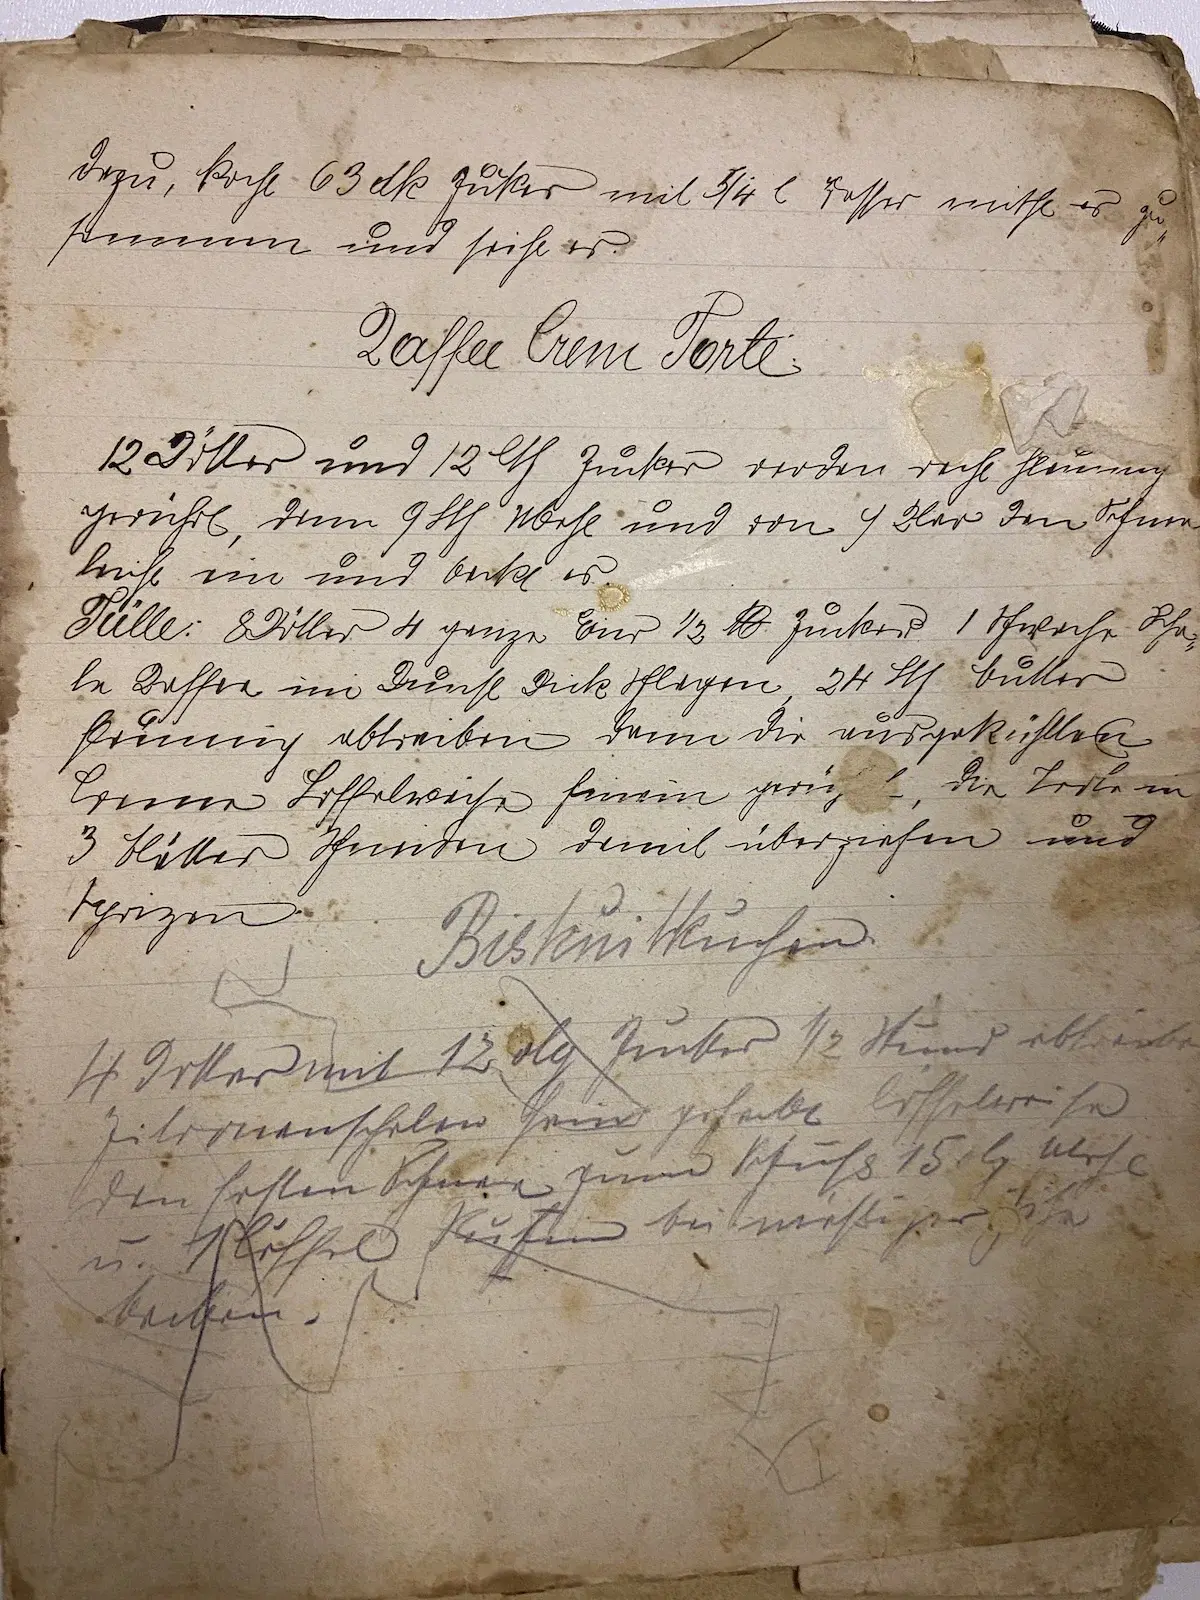 dazu, koche 63 dk Zuker mit 5/4 l Wasser mische es zu„
sammen und seihe es.
Kaffee Crem Torte.
12 Dötter und 12 Lth Zucker werden recht pflaumig
gerührt, dann 9 Lth Mehl und von 9 Klar den Schnee
leicht ein und backe es.
Fülle: 8 Dötter 4 ganze Eier 1/2 ℔ Zucker 1 schwache Scha„
le Kaffee im Dunst dick schlagen, 24 Lth Butter
pflaumig abtreiben dann die ausgekühlten
Creme Löffelweise hinein, die Torte in
3 Blätter schneiden damit überziehen und
sprizen.
Biskuitkuchen.
4 Dotter mit 12 dkg Zucker 1/2 Stund abtreiben
Zitronenschalen fein löffelweise
den festen Schnee zum Schluß 15 dkg Mehl
u. 1 Löffel bei mäßiger Hitze
backen.